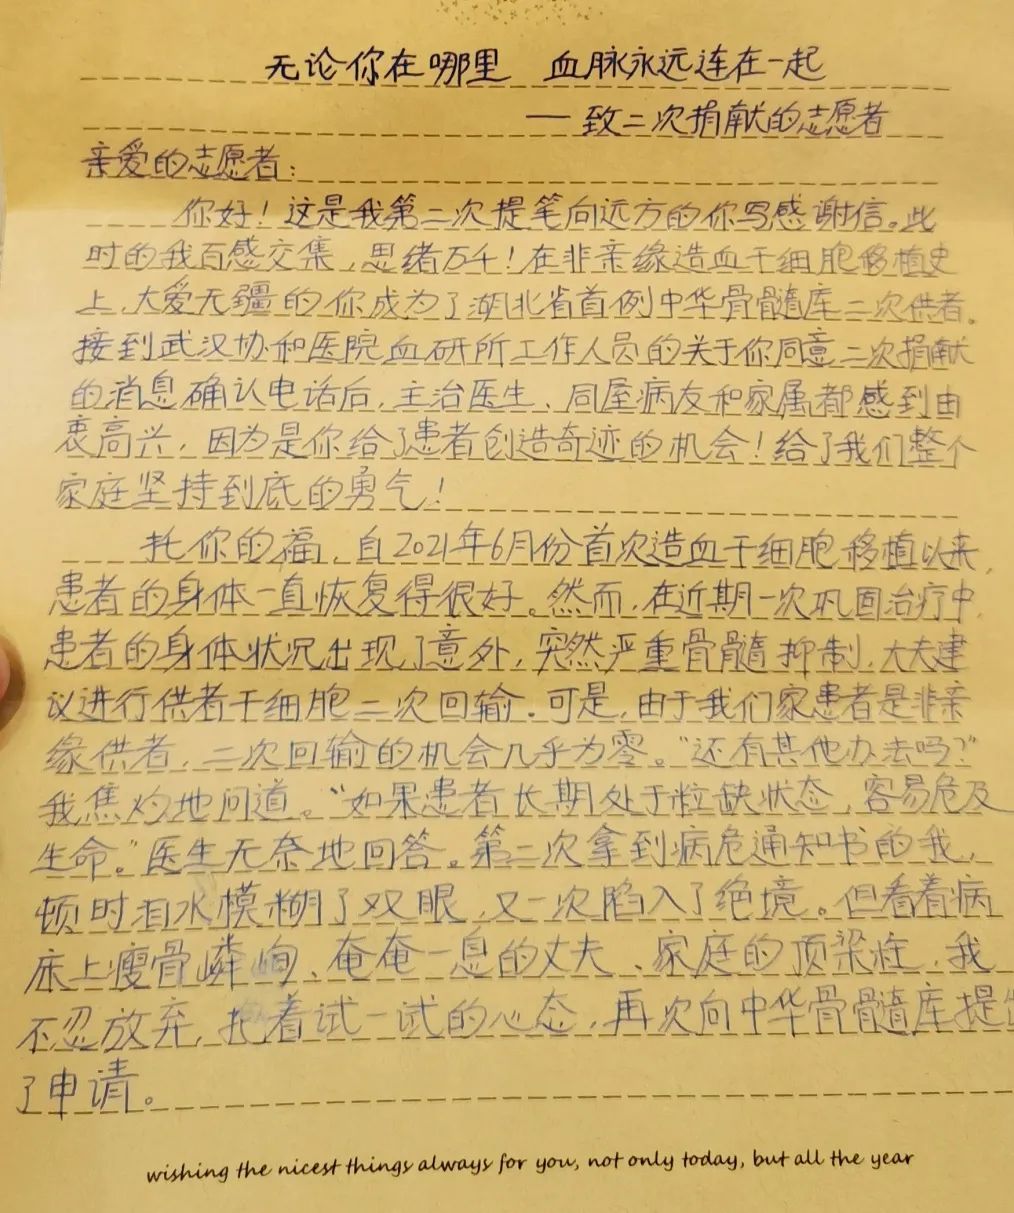 无论你在哪里　血脉永远连在一起
——致二次捐献的志愿者
亲爱的志愿者：
你好！这是我第二次提笔向远方的你写感谢信。此
时的我百感交集，思绪万千！在非亲缘造血干细胞移植史
上，大爱无疆的你成为了湖北省首例中华骨髓库二次供者。
接到武汉协和医院血研所工作人员的关于你同意二次捐献
的消息确认电话后，主治医生、同屋病友和家属都感到由
衷高兴，因为是你给了患者创造奇迹的机会！给了我们整个
家庭坚持到底的勇气！
托你的福，自2021年6月份首次造血干细胞移植以来，
患者的身体一直恢复得很好。然而，在近期一次巩固治疗中，
患者的身体状况出现了意外，突然严重骨髓抑制，大夫建
议进行供者干细胞二次回输。可是，由于我们家患者是非亲
缘供者，二次回输的机会几乎为零。“还有其他办法吗？”
我焦灼地问道。“如果患者长期处于粒缺状态，容易危及
生命。”医生无奈地回答。第二次拿到病危通知书的我，
顿时泪水模糊了双眼，又一次陷入了绝境。但看着病
床上瘦骨嶙峋、奄奄一息的丈夫、家庭的顶梁柱，我
不忍放弃，抱着试一试的心态，再次向中华骨髓库提出
了申请。
wishing the nicest things always for you, not only today, but all the year